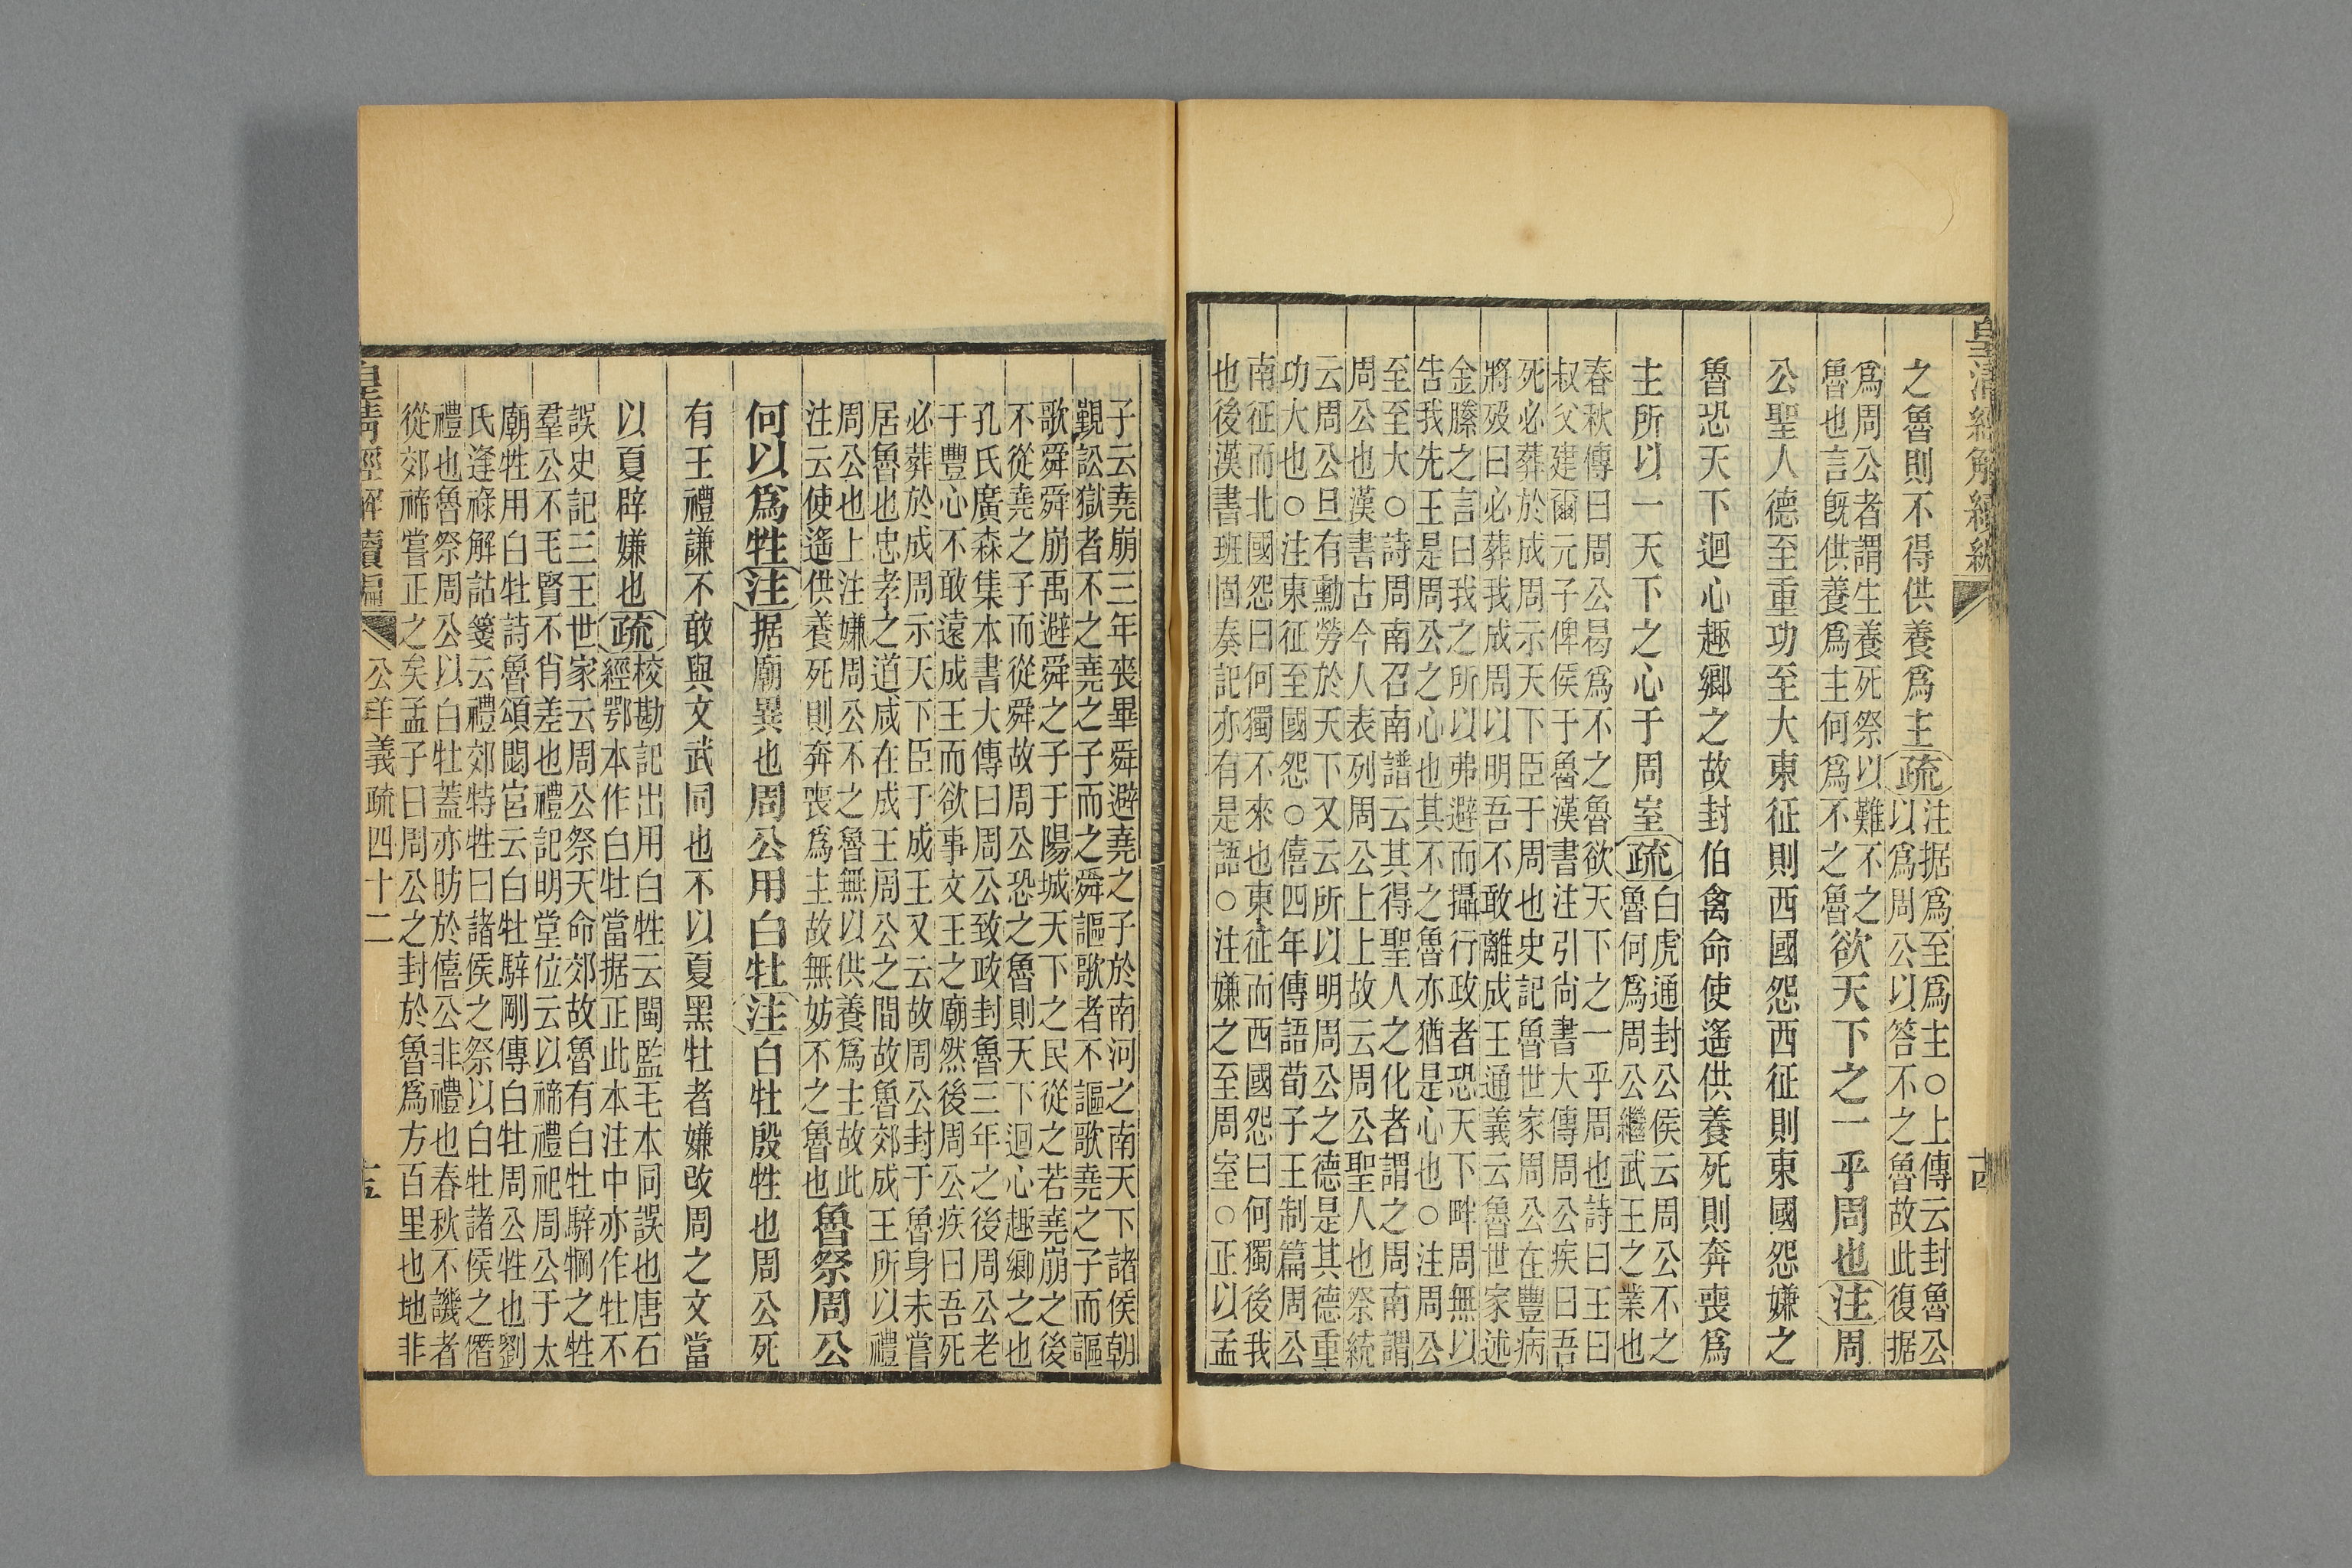 皇清經解續編
之魯則不得供養爲主疏
注据爲至爲主○上傳云封魯公
以爲周公以答不之魯故此復据
爲周公者謂生養死祭以難不之
魯也言旣供養爲主何爲不之魯
欲天下之一乎周也注周
公聖人德至重功至大東征則西國怨西征則東國怨嫌之
魯恐天下迴心趣鄉之故封伯禽命使遙供養死則奔喪爲
主所以一天下之心于周室疏
白虎通封公侯云周公不之
魯何爲周公繼武王之業也
春秋傳曰周公曷爲不之魯欲天下之一乎周也詩曰王曰
叔父建爾元子俾侯于魯漢書注引尙書大傳周公疾曰吾
死必葬於成周示天下臣于周也史記魯世家周公在豐病
將歿曰必葬我成周以明吾不敢離成王通義云魯世家述
金縢之言曰我之所以弗避而攝行政者恐天下畔周無以
告我先王是周公之心也其不之魯亦猶是心也○注周公
至至大○詩周南召南譜云其得聖人之化者謂之周南謂
周公也漢書古今人表列周公上上故云周公聖人也祭統
云周公旦有勳勞於天下又云所以明周公之德是其德重
功大也○注東征至國怨○僖四年傳語荀子王制篇周公
南征而北國怨曰何獨不來也東征而西國怨曰何獨後我
也後漢書班固奏記亦有是語○注嫌之至周室○正以孟
子云堯崩三年喪畢舜避堯之子於南河之南天下諸侯朝
覲訟獄者不之堯之子而之舜謳歌者不謳歌堯之子而謳
歌舜舜崩禹避舜之子于陽城天下之民從之若堯崩之後
不從堯之子而從舜故周公恐之魯則天下迴心趣鄉之也
孔氏廣森集本書大傳曰周公致政封魯三年之後周公老
于豐心不敢遠成王而欲事文王之廟然後周公疾曰吾死
必葬於成周示天下臣于成王又云故周公封于魯身未嘗
居魯也忠孝之道咸在成王周公之閒故魯郊成王所以禮
周公也上注嫌周公不之魯無以供養爲主故此
注云使遙供養死則奔喪爲主故無妨不之魯也
魯祭周公
何以爲牲注据廟異也周公用白牡注白牡殷牲也周公死
有王禮謙不敢與文武同也不以夏黑牡者嫌改周之文當
以夏辟嫌也疏
校勘記出用白牲云閩監毛本同誤也唐石
經鄂本作白牡當据正此本注中亦作牡不
誤史記三王世家云周公祭天命郊故魯有白牡騂犅之牲
羣公不毛賢不肖差也禮記明堂位云以禘禮祀周公于太
廟牲用白牡詩魯頌閟宮云白牡騂剛傳白牡周公牲也劉
氏逢祿解詁箋云禮郊特牲曰諸侯之祭以白牡諸侯之僭
禮也魯祭周公以白牡蓋亦昉於僖公非禮也春秋不譏者
從郊禘嘗正之矣孟子曰周公之封於魯爲方百里也地非
皇清經解續編 公羊義疏四十二